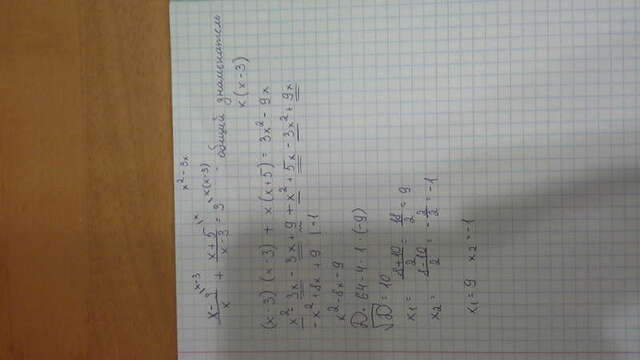 x² - 3x
x-3^{|x-3}/x + x+5^{|x}/x-3 = 3^{|x(x-3)} - общий знаменатель
x(x-3)
(x-3)(x-3) + x(x+5) = 3x² - 9x
x² - 3x - 3x + 9 + x² + 5x - 3x² + 9x
-x² + 8x + 9 | -1
x² - 8x - 9
D = 64 - 4 · 1 · (-9)
√D = 10
x₁ = 8+10/2 = 18/2 = 9
x₂ = 8-10/2 = -2/2 = -1
x₁ = 9 x₂ = -1